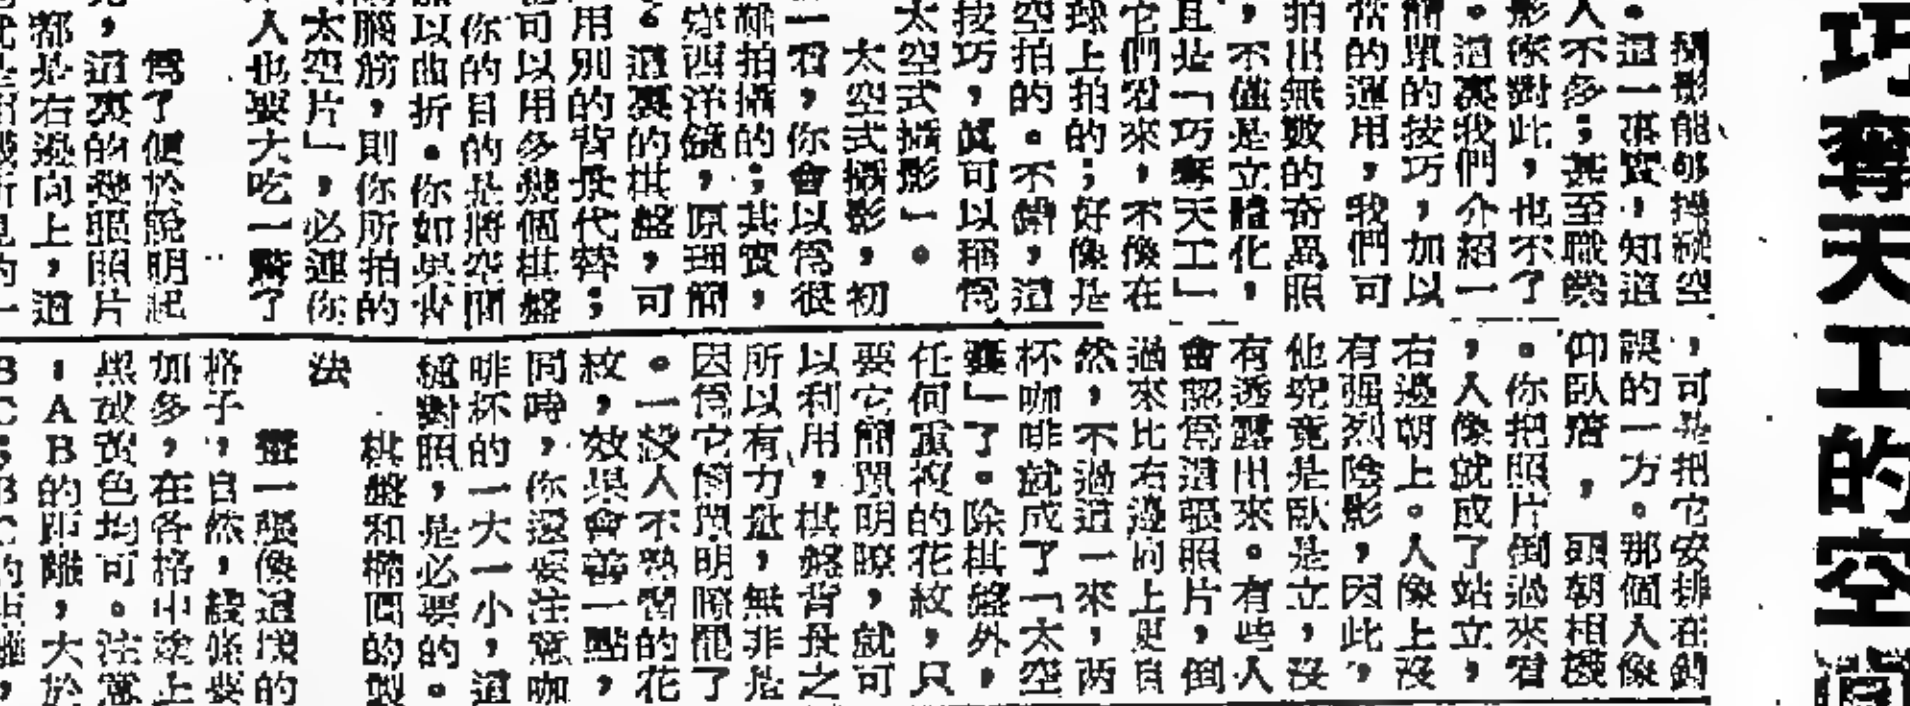 巧奪天工的空間
攝影能够操縱空
。這一事實,知道
人不多;甚至職業
影家對此,也不了
。這裏我們介紹一
簡單的技巧,加以
當的運用,我們可
拍出無數的奇異照
,不僅是立體化,
且是「巧奪天工」
它們看來,不像在
球上拍的;好像是
空拍的。不錯,這
技巧,眞可以稱爲
太空式攝影」。
太空式攝影,初
一看,你會以爲很
難拍攝的;其實,
穿西洋鏡,原理簡
。這裏的棋盤,可
用別的背景代替;
可以用多幾個棋盤
你的目的是將空間
以曲折。你如果肯
腦筋,則你所拍的
太空片」,必連你
人也要大吃一驚了
爲了便於說明起
,這裏的幾張照片
都是右邊向上,這
,可是把它安排在錯
誤的一方。那個人像
仰臥着,頭朝相機
。你把照片倒過來看
,人像就成了站立,
右邊朝上。人像上沒
有强烈陰影,因此,
他究竟是臥是立,沒
有透露出來。有些人
會認爲這張照片,倒
過來比右邊向上更自
然,不過這一來,两
杯咖啡就成了「太空
」了。除棋盤外,
任何重複的花紋,只
要它簡單明瞭,就可
以利用,棋盤背景之
所以有力量,無非是
因爲它簡單明瞭罷了
。一般人不熟習的花
紋,效果會善一點,
同時,你還要注意咖
啡杯的一大一小,這
種對照,是必要的。
棋盤和橢圓的製
法
畫一張像這塊的
格子,自然,綫條要
加多,在各格中塗上
黑或黃色均可。注意
:AB的距離,大於
BC;BC的距離,